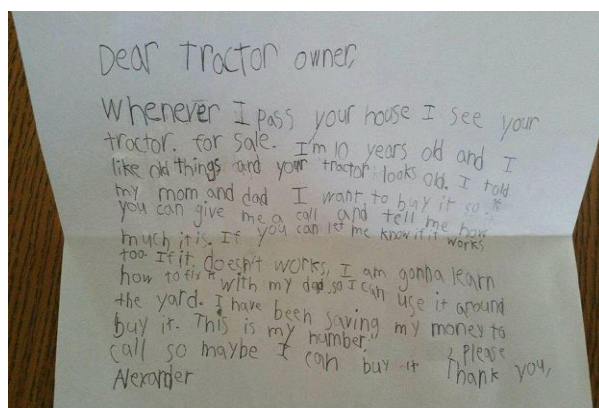 Dear Tractor owner,
Whenever I pass your house I see your
tractor. for sale. I'm 10 years old and I
like old things and your tractor looks old. I told
my mom and dad I want to buy it so
you can give me a call and tell me how
much it is. If you can let me know if it works
too. If it doesn't works, I am gonna learn
how to fix it with my dad so I can use it around
the yard. I have been saving my money to
buy it. This is my number. Please
call so maybe I can buy it Thank you,
Alexander